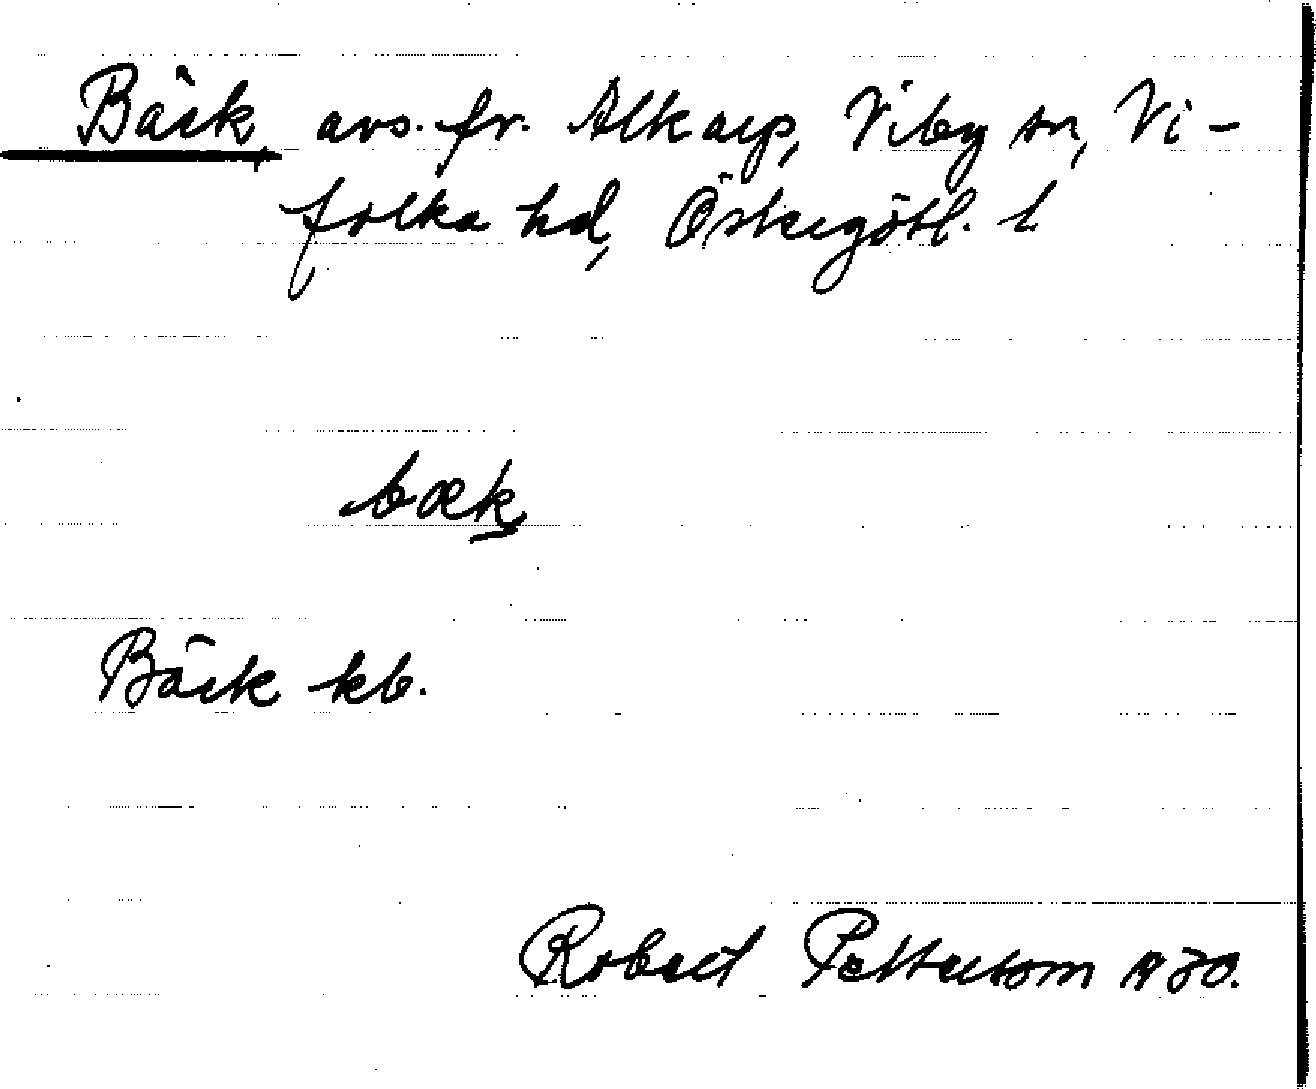 Bäck, avs. fr. Alkarp, Viby sn, Vi-
folka hd, Östergötl. l.
bæk
Bäck kb.
Robert Pettersson 1930.